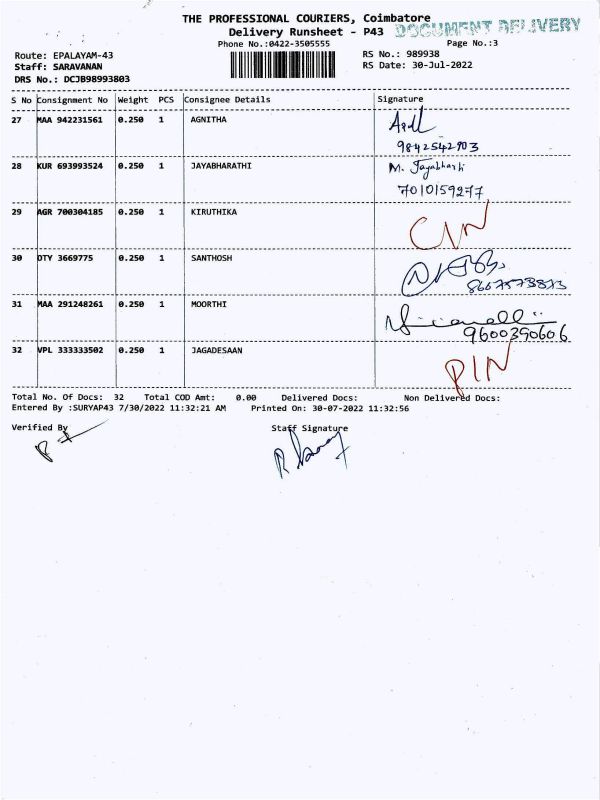 THE PROFESSIONAL COURIERS, Coimbatore
DOCUMENT DELIVERY
Delivery Runsheet - P43
Phone No.:0422-3505555 Page No.:3
Route: EPALAYAM-43 RS No.: 989938
Staff: SARAVANAN RS Date: 30-Jul-2022
DRS No.: DCJB98993803
S No Consignment No Weight PCS Consignee Details Signature
27 MAA 942231561 0.250 1 AGNITHA
9842542903
28 KUR 693993524 0.250 1 JAYABHARATHI M. Jayabharathi
7010159277
29 AGR 700304185 0.250 1 KIRUTHIKA CIN
30 DTY 3669775 0.250 1 SANTHOSH
8667573873
31 MAA 291248261 0.250 1 MOORTHI
9600390606
32 VPL 333333502 0.250 1 JAGADESAAN PIN
Total No. Of Docs: 32 Total COD Amt: 0.00 Delivered Docs: Non Delivered Docs:
Entered By :SURYAP43 7/30/2022 11:32:21 AM Printed On: 30-07-2022 11:32:56
Verified By Staff Signature